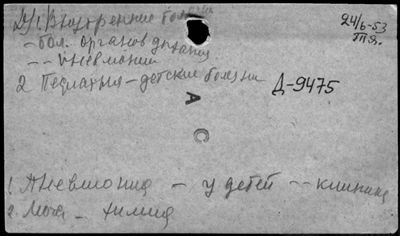 Д/1. Внутренние болезни
24/6-53
- бол. органов дыхания
-- пневмонии
2 Педиатрия - детские болезни
Д-9475
А
С
1. Пневмония - у детей -- клиника
2. Моча - химия